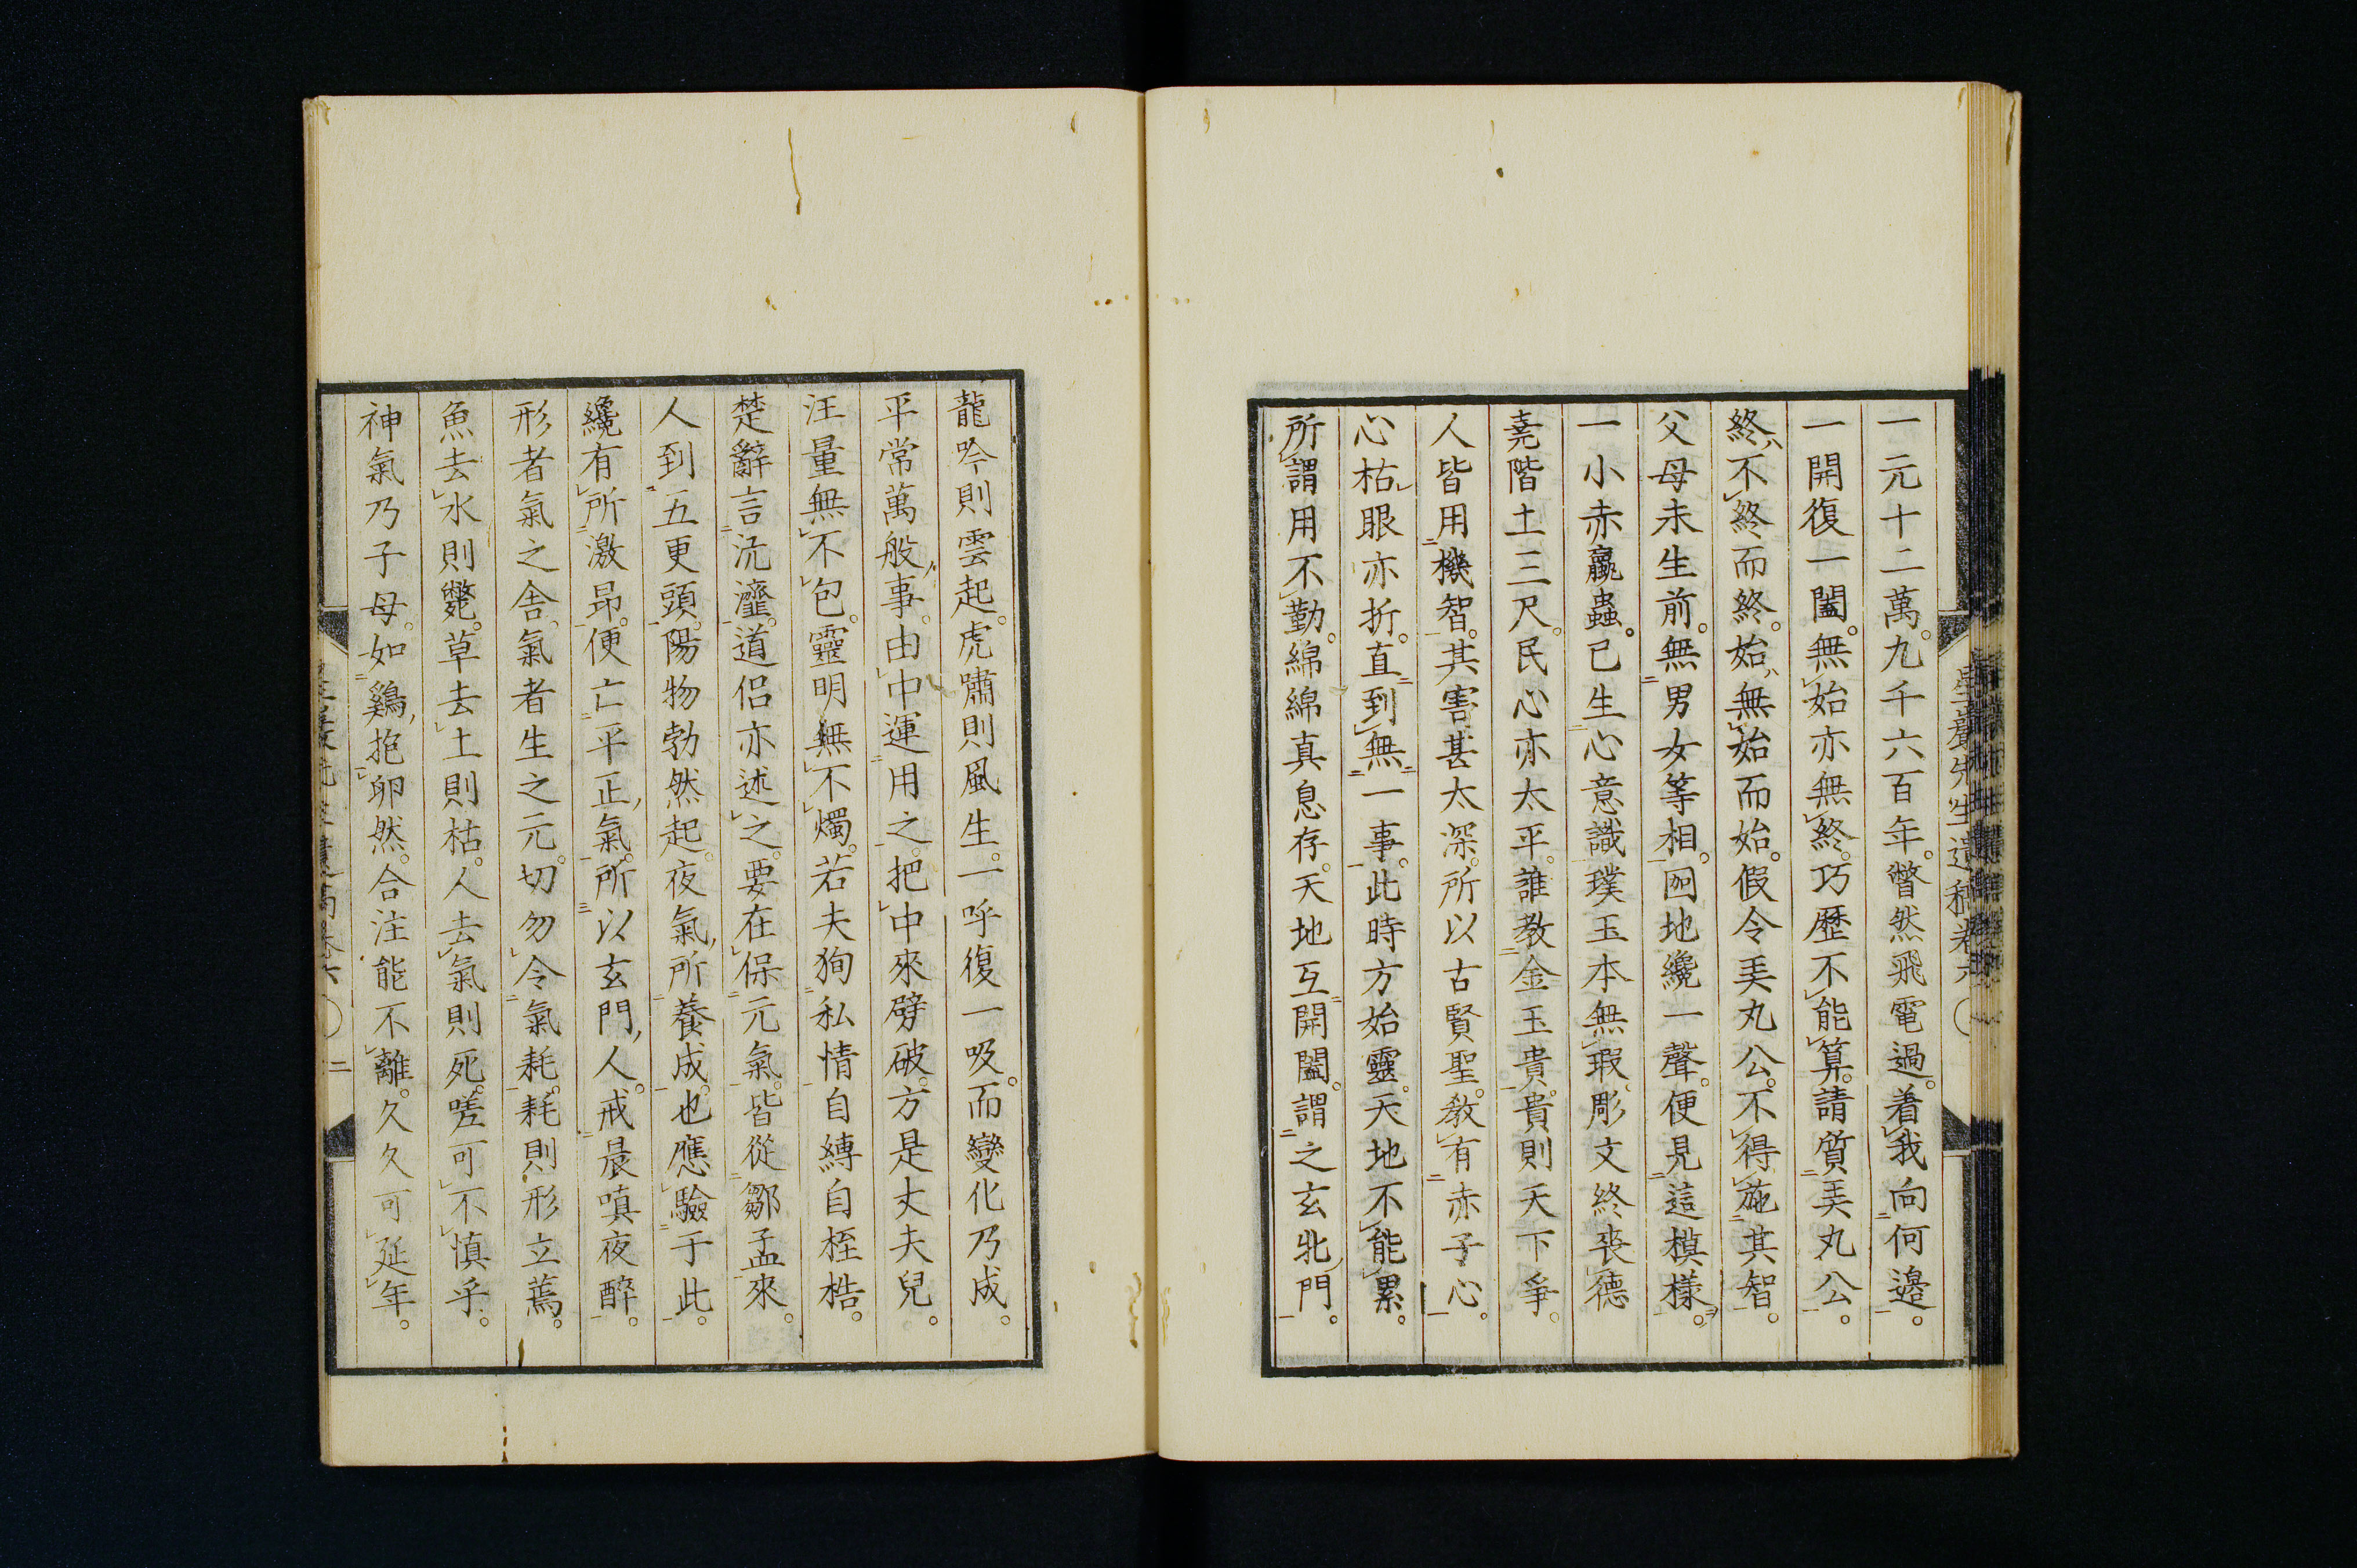 一元十二萬。九千六百年。瞥然飛電過。着我向何邉。
一開復一闔。無始亦無終。巧歴不能算。請質美丸公。
終不終而終。始無始而始。假令美丸公。不得施其智。
父母未生前。無男女等相。囮地纔一聲。便見這模樣。
一小赤蠃蟲。已生心意識。璞玉本無瑕。彫文終喪德
堯階土三尺。民心亦太平。誰教金玉貴。貴則天下爭。
人皆用機智。其害甚太深。所以古賢聖。教有赤子心。
心枯眼亦折。直到無一事。此時方始靈。天地不能累。
所謂用不勤。綿綿真息存。天地互開闔。謂之玄牝門。
先生遺稿卷六
龍吟則雲起。虎嘯則風生。一呼復一吸。而變化乃成。
平常萬般事。由中運用之。把中來劈破。方是丈夫兒。
汪量無不包。靈明無不燭。若夫狥私情自縳自桎梏。
楚辭言沆瀣。道侶亦述之。要在保元氣。皆從鄒孟來。
人到五更頭。陽物勃然起。夜氣所養成。也應驗于此。
纔有所激昂。便亡平正氣。所以玄門人。戒晨嗔夜醉。
形者氣之舎。氣者生之元。切勿令氣耗。耗則形立蔫。
魚去水則斃。草去土則枯。人去氣則死。嗟可不慎乎。
神氣乃子母。如鷄抱卵然。合注能不離。久久可延年。
二